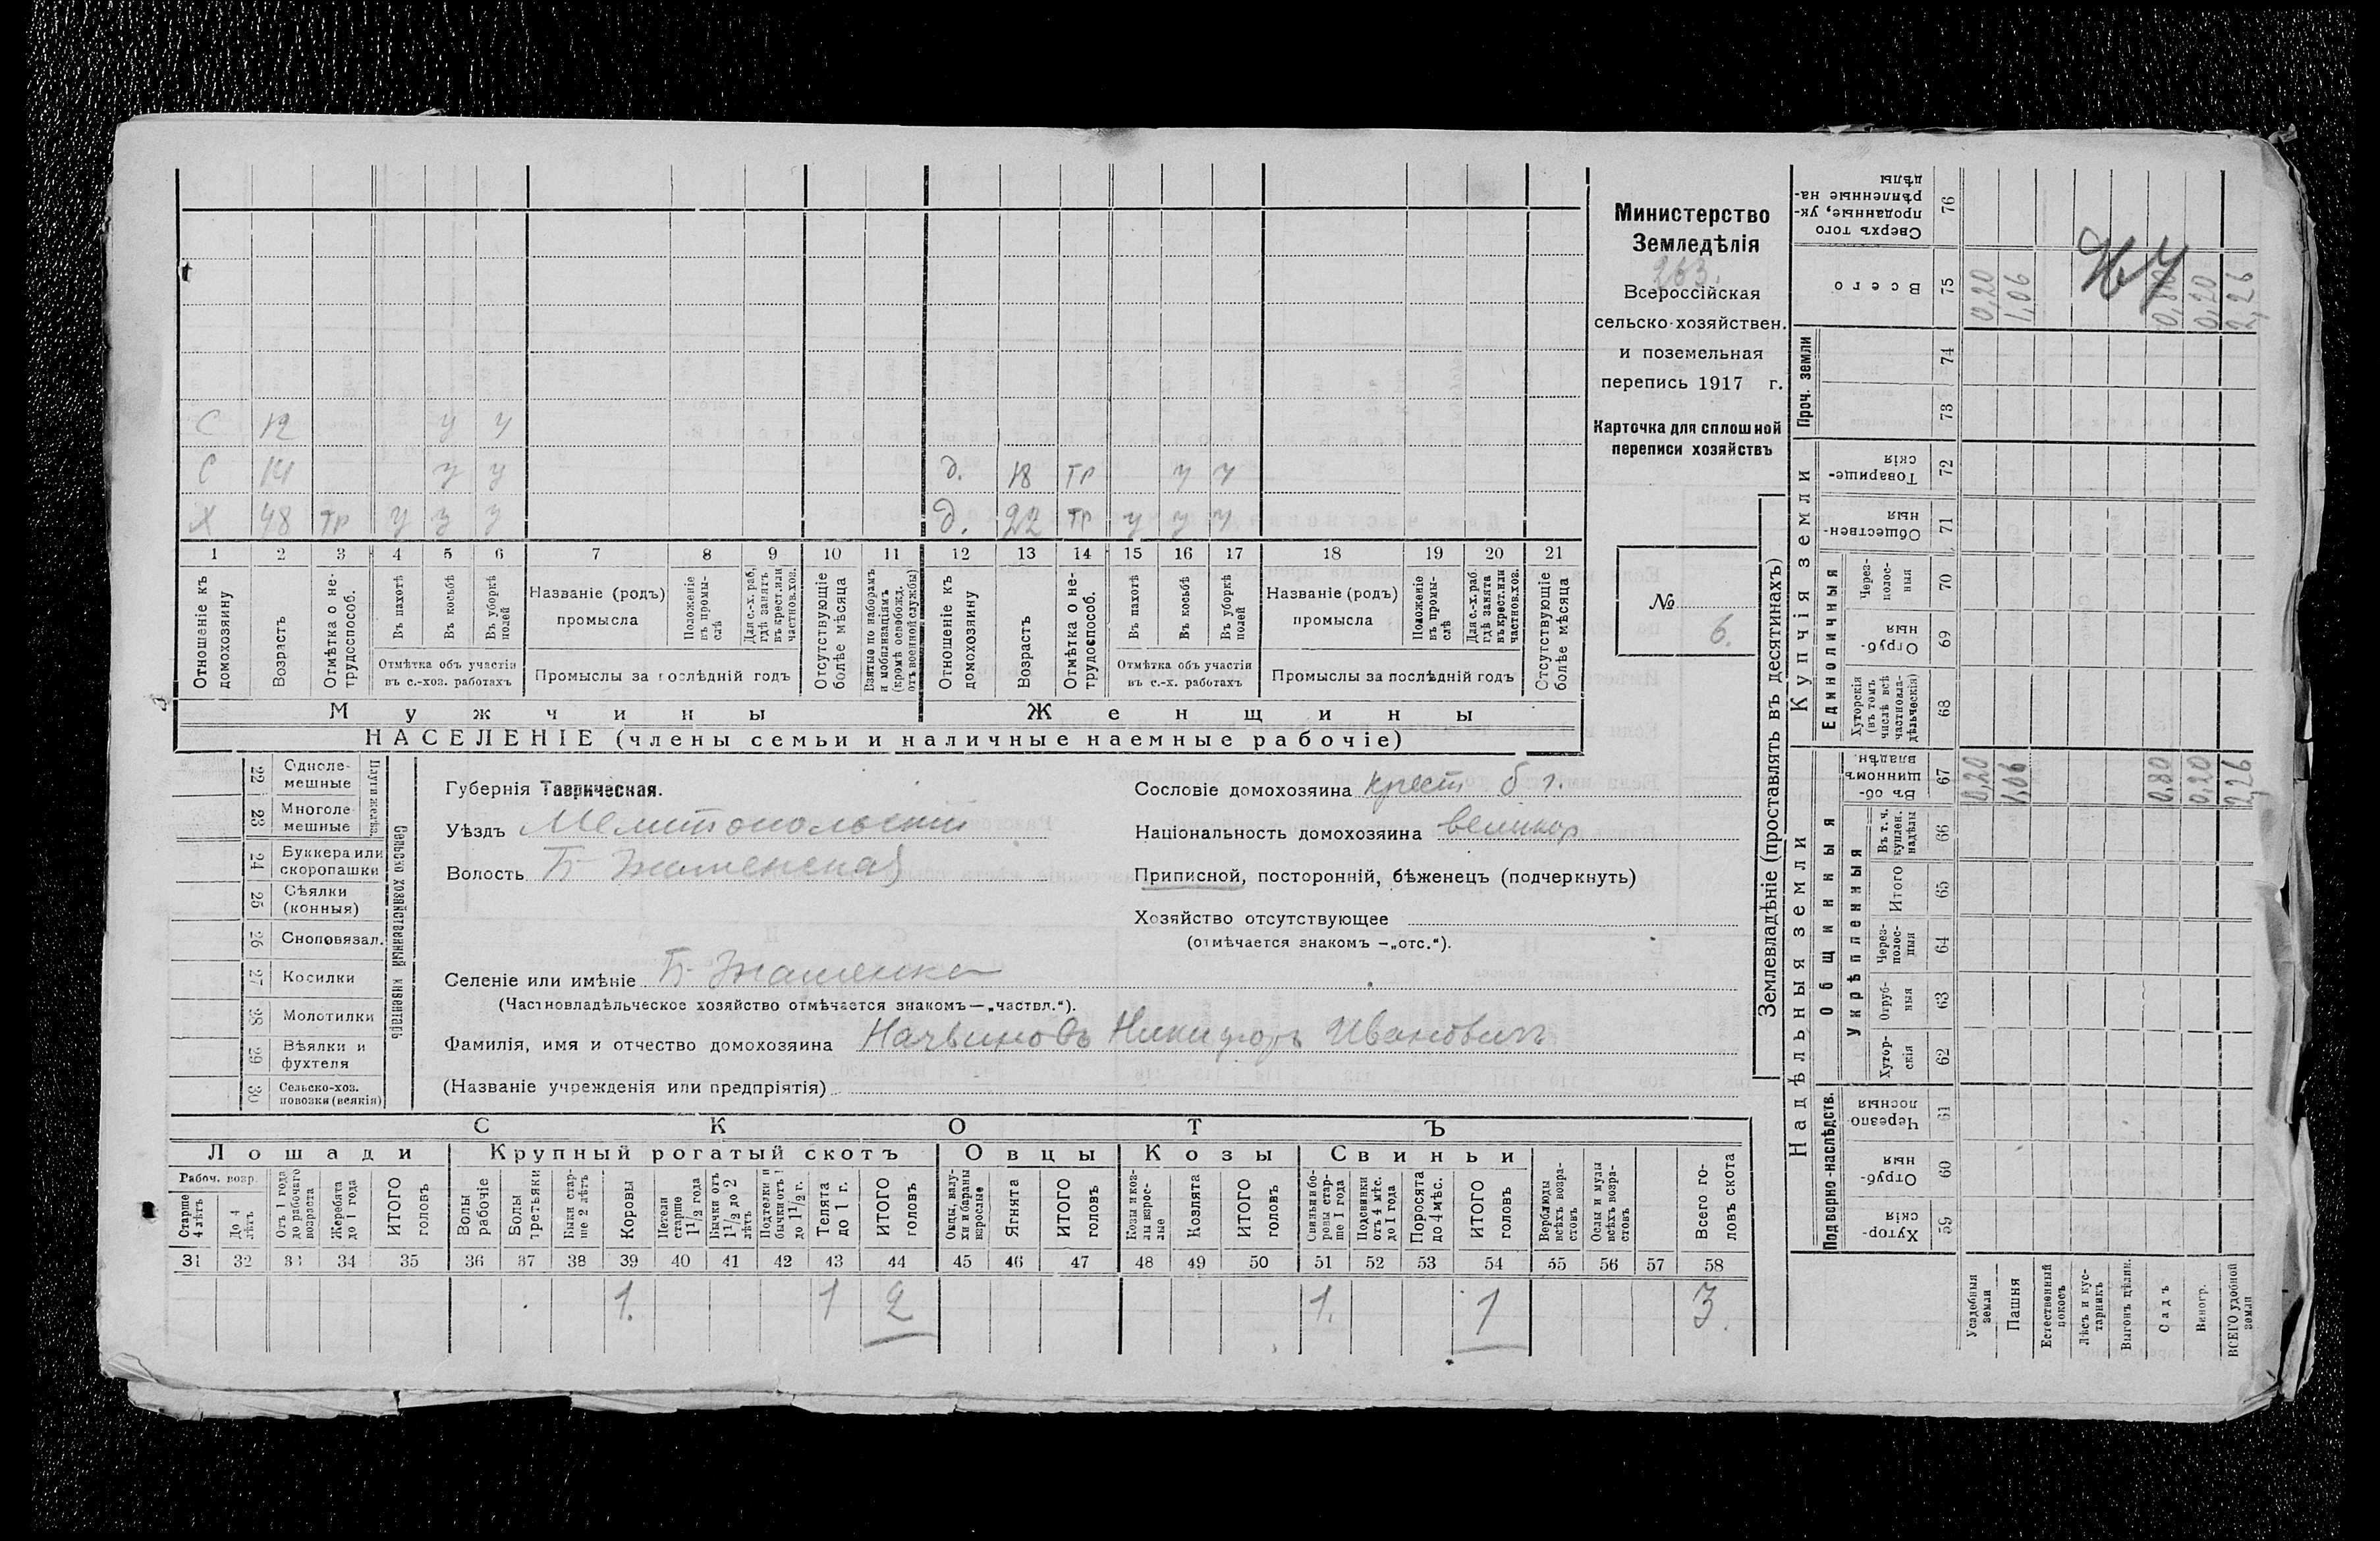 Министерство
Земледѣлія
263.
Всероссійская
сельско-хозяйствен.
и поземельная
перепись 1917 г.
Карточка для сплошной
переписи хозяйствъ
№
6.
С 12 у у
С 14 у у д. 18 тр у у
Х 48 тр у у у д. 22 тр у у у
1 2 3 4 5 6 7 8 9 10 11 12 13 14 15 16 17 18 19 20 21
Отношеніе къ домохозяину
Возрастъ
Отмѣтка о не-трудоспособ.
Въ пахотѣ
Въ косьбѣ
Въ уборкѣ полей
Отмѣтка объ участіи въ с.-хоз. работахъ
Названіе (родъ) промысла
Положеніе въ промы-слѣ
Для с.-х. раб. гдѣ занятъ въ крест. или частнов. хоз.
Промыслы за послѣдній годъ
Отсутствующіе болѣе мѣсяца
Взятые по наборамъ и мобилизаціямъ (кромѣ освобожд. отъ военной службы)
Отношеніе къ домохозяину
Возрастъ
Отмѣтка о не-трудоспособ.
Въ пахотѣ
Въ косьбѣ
Въ уборкѣ полей
Отмѣтка объ участіи въ с.-х. работахъ
Названіе (родъ) промысла
Положеніе въ промы-слѣ
Для с.-х. раб. гдѣ занята въ крест. или частнов. хоз.
Промыслы за послѣдній годъ
Отсутствующіе болѣе мѣсяца
Мужчины Женщины
НАСЕЛЕНІЕ (члены семьи и наличные наемные рабочіе)
Сельско хозяйственный инвентарь
22 Одноле-мешные
23 Многоле-мешные
24 Буккера или скоропашки
25 Сѣялки (конныя)
26 Сноповязал.
27 Косилки
28 Молотилки
29 Вѣялки и фухтеля
30 Сельско-хоз. повозки (всякія)
Губернія Таврическая.
Уѣздъ Мелитопольскій
Волость Б-Знаменская
Сословіе домохозяина крест б г.
Національность домохозяина великор
Приписной, посторонній, бѣженецъ (подчеркнуть)
Хозяйство отсутствующее
(отмѣчается знакомъ —„отс.“).
Селеніе или имѣніе Б-Знаменка
(Частновладѣльческое хозяйство отмѣчается знакомъ—„частвл.“).
Фамилія, имя и отчество домохозяина Никифоръ Ивановичъ
(Названіе учрежденія или предпріятія)
СКОТЪ
Лошади Крупный рогатый скотъ Овцы Козы Свиньи
Рабоч. возр.
Старше 4 лѣтъ
До 4 лѣтъ
Отъ 1 года до рабочаго возраста
Жеребята до 1 года
ИТОГО головъ
Волы рабочіе
Волы третьяки
Быки стар-ше 2 лѣтъ
Коровы
Нетели старше 1½ года
Бычки отъ 1½ до 2 лѣтъ
Подтелки и бычки отъ 1 до 1½ г.
Телята до 1 г.
ИТОГО головъ
Овцы, валу-хи и бараны взрослые
Ягнята
ИТОГО головъ
Козы и коз-лы взрос-лые
Козлята
ИТОГО головъ
Свиньи и бо-ровы стар-ше 1 года
Подсвинки отъ 4 мѣс. до 1 года
Поросята до 4 мѣс.
ИТОГО головъ
Верблюды всѣхъ возра-стовъ
Ослы и мулы всѣхъ возра-стовъ
Всего го-ловъ скота
31 32 33 34 35 36 37 38 39 40 41 42 43 44 45 46 47 48 49 50 51 52 53 54 55 56 57 58
1. 1 2 1. 1 3
Землевладѣніе (проставлять въ десятинахъ)
Надѣльныя земли
Купчія земли
Проч. земли
Подворно-наслѣдств.
Общинныя
Укрѣпленныя
Единоличныя
Сверхъ того проданные, ук-рѣпленные на-дѣлы 76
Всего 75 0,20 1,06 0,80 0,20 2,26
74
73
Товарище-скія 72
Обществен-ныя 71
Через-полос-ныя 70
Отруб-ныя 69
Хуторскія (въ томъ числѣ всѣ частновла-дѣльческія) 68
Въ об-щинномъ владѣн. 67 0,20 1,06 0,80 0,20 2,26
Въ т. ч. куплен. надѣлы 66
Итого 65
Через-полос-ныя 64
Отруб-ныя 63
Хутор-скія 62
Черезпо-лосныя 61
Отруб-ныя 60
Хутор-скія 59
Усадебныя земли
Пашня
Естественный покосъ
Лѣсъ и кус-тарникъ
Выгонъ цѣлин.
Садъ
Виногр.
ВСЕГО удобной земли